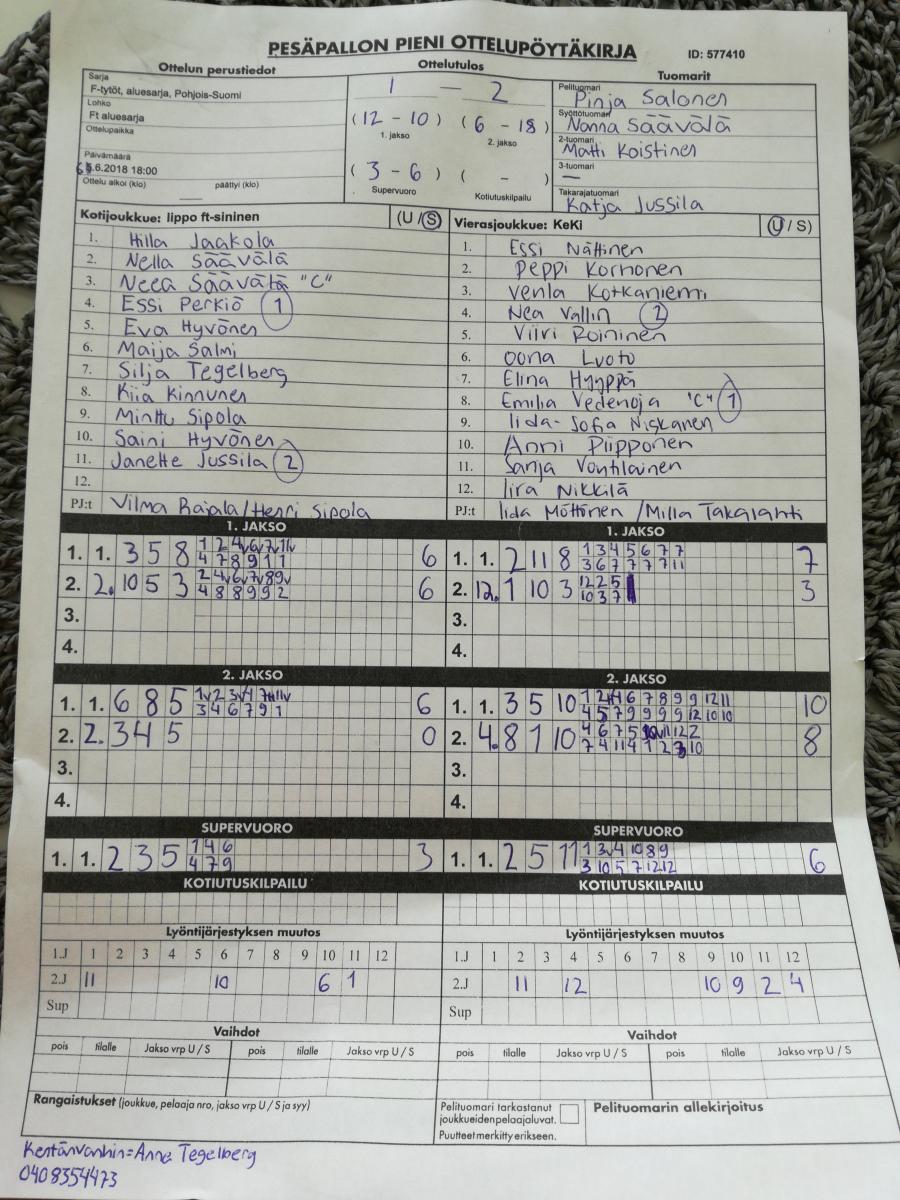 PESÄPALLON PIENI OTTELUPÖYTÄKIRJA
ID: 577410
Ottelun perustiedot
Sarja
F-tytöt, aluesarja, Pohjois-Suomi
Lohko
Ft aluesarja
Ottelupaikka
Päivämäärä
6.6.2018 18:00
Ottelu alkoi (klo) päättyi (klo)
Ottelutulos
1 — 2
(12 - 10) (6 - 18)
1. jakso 2. jakso
(3 - 6) ( - )
Supervuoro Kotiutuskilpailu
Tuomarit
Pelituomari
Pinja Salonen
Syöttötuomari
Nanna Säävälä
2-tuomari
Matti Koistinen
3-tuomari
—
Takarajatuomari
Katja Jussila
Kotijoukkue: lippo ft-sininen (U / S)
1. Hilla Jaakola
2. Nella Säävälä
3. Neea Säävälä "C"
4. Essi Perkiö 1
5. Eva Hyvönen
6. Maija Salmi
7. Silja Tegelberg
8. Kiia Kinnunen
9. Minttu Sipola
10. Saini Hyvönen
11. Janette Jussila 2
12.
PJ:t Vilma Rajala/Henri Sipola
Vierasjoukkue: KeKi (U / S)
1. Essi Nättinen
2. Peppi Korhonen
3. Venla Kotkaniemi
4. Nea Vallin 2
5. Viivi Roininen
6. Oona Luoto
7. Elina Hyyppä
8. Emilia Vedenoja "C" 1
9. Iida-Sofia Niskanen
10. Anni Piipponen
11. Sanja Vontilainen
12. Iira Nikkilä
PJ:t Iida Möttönen /Milla Takalahti
1. JAKSO
1. 1. 3 5 8 1 2 4v 6v 7v 11v 6
4 7 8 9 1 1
2. 2. 10 5 3 2 4v 6v 7v 8 9v 6
4 8 8 9 9 2
3.
4.
1. JAKSO
1. 1. 2 11 8 1 3 4 5 6 7 7 7
3 6 7 7 7 7 11
2. 12. 1 10 3 12 2 5 3
10 3 7
3.
4.
2. JAKSO
1. 1. 6 8 5 1v 2 3v 4 7 11v 6
3 4 6 7 9 1
2. 2. 3 4 5 0
3.
4.
2. JAKSO
1. 1. 3 5 10 1 2 4 6 7 8 9 9 12 11 10
4 5 7 9 9 9 9 12 10 10
2. 4. 8 1 10 4 6 7 5 10v 11 12 2 8
7 4 11 4 1 2 3 10
3.
4.
SUPERVUORO
1. 1. 2 3 5 1 4 6 3
4 7 9
SUPERVUORO
1. 1. 2 5 11 1 3v 4 10 8 9 6
3 10 5 7 12 12
KOTIUTUSKILPAILU
KOTIUTUSKILPAILU
Lyöntijärjestyksen muutos
1.J 1 2 3 4 5 6 7 8 9 10 11 12
2.J 11 10 6 1
Sup
Lyöntijärjestyksen muutos
1.J 1 2 3 4 5 6 7 8 9 10 11 12
2.J 11 12 10 9 2 4
Sup
Vaihdot
pois tilalle Jakso vrp U / S pois tilalle Jakso vrp U / S
Vaihdot
pois tilalle Jakso vrp U / S pois tilalle Jakso vrp U / S
Rangaistukset (joukkue, pelaaja nro, jakso vrp U / S ja syy)
Pelituomari tarkastanut
joukkueiden pelaajaluvat.
Puutteet merkitty erikseen.
Pelituomarin allekirjoitus
Kentänvanhin=Anne Tegelberg
0408354473